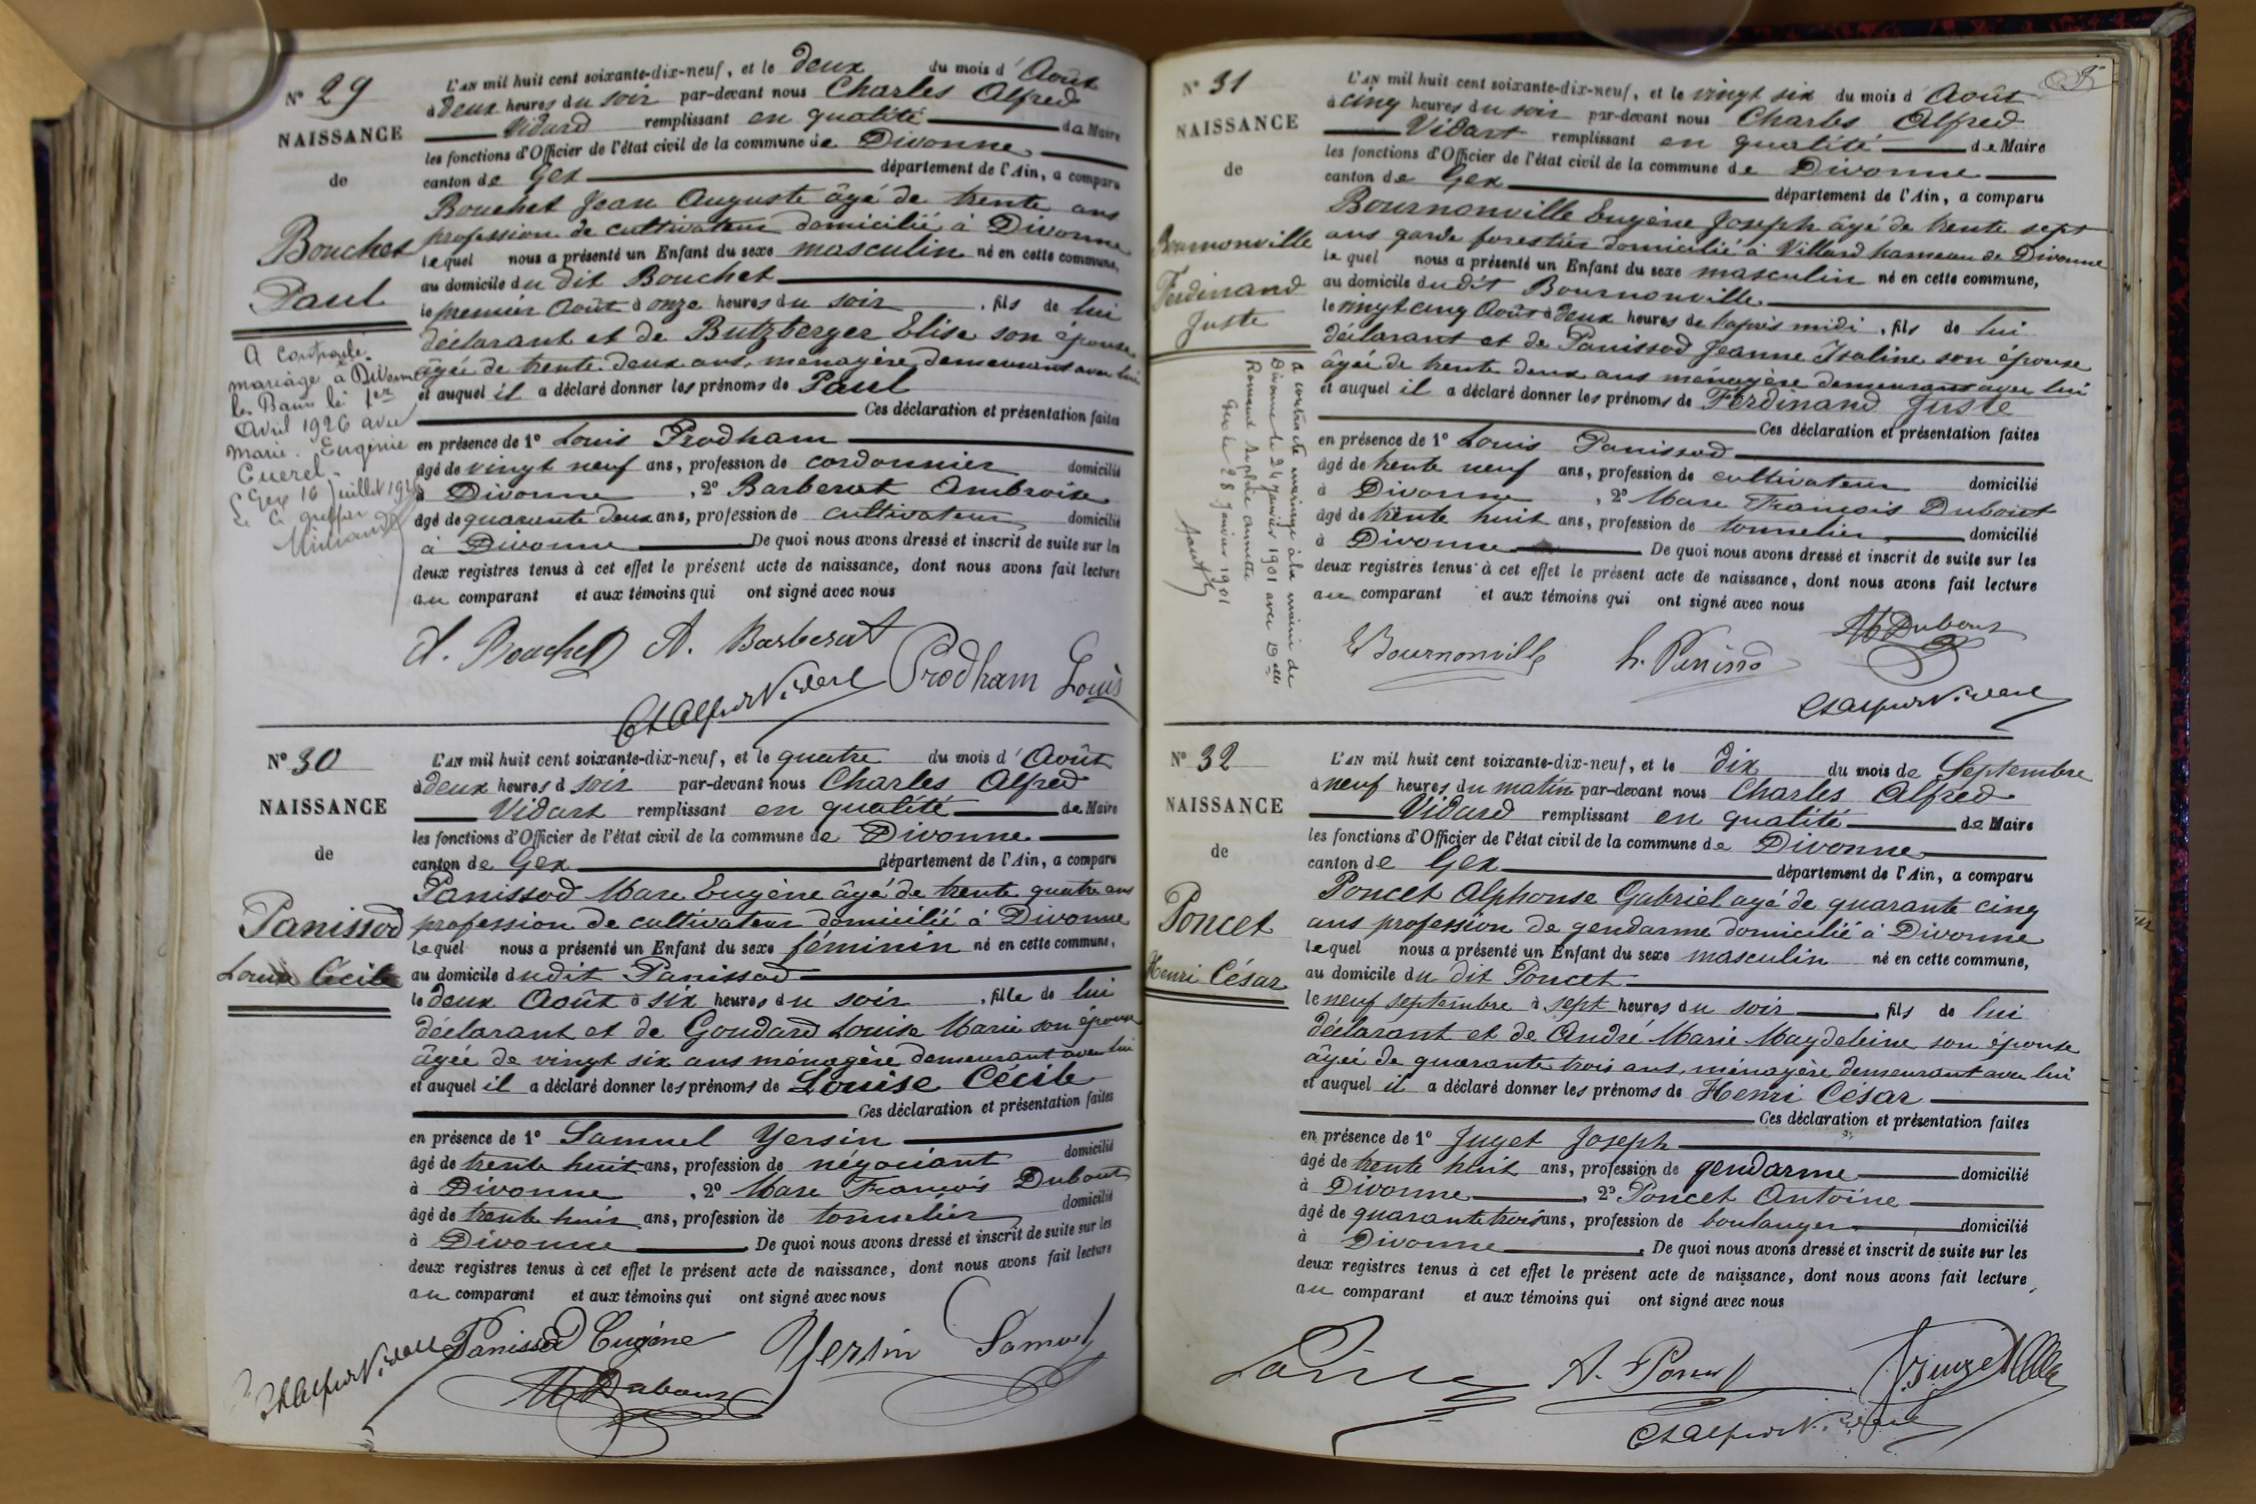 N° 29
NAISSANCE
de
Bouchet
Paul
A contracté
mariage à Divonne
les Bains le 1er
Avril 1926 avec
Marie Eugénie
Cuerel.
Gex 16 Juillet 1926
Le C. greffier
L'AN mil huit cent soixante-dix-neuf, et le deux du mois d'Août
à deux heures du soir par-devant nous Charles Alfred
Vidard remplissant en qualité de Maire
les fonctions d'Officier de l'état civil de la commune de Divonne
canton de Gex département de l'Ain, a comparu
Bouchet Jean Auguste âgé de trente ans
profession de cultivateur domicilié à Divonne
lequel nous a présenté un Enfant du sexe masculin né en cette commune,
au domicile du dit Bouchet
le premier Août à onze heures du soir, fils de lui
déclarant et de Butzberger Elise son épouse
âgée de trente deux ans, ménagère demeurant avec lui
et auquel il a déclaré donner les prénoms de Paul
Ces déclaration et présentation faites
en présence de 1° Louis Prodham
âgé de vingt neuf ans, profession de cordonnier domicilié
à Divonne, 2° Barberat Ambroise
âgé de quarante deux ans, profession de cultivateur domicilié
à Divonne De quoi nous avons dressé et inscrit de suite sur les
deux registres tenus à cet effet le présent acte de naissance, dont nous avons fait lecture
au comparant et aux témoins qui ont signé avec nous
A. Bouchet A. Barberat
Ch Alfred Vidard Prodham Louis
N° 30
NAISSANCE
de
Panissod
Louise Cécile
L'AN mil huit cent soixante-dix-neuf, et le quatre du mois d'Août
à deux heures d soir par-devant nous Charles Alfred
Vidart remplissant en qualité de Maire
les fonctions d'Officier de l'état civil de la commune de Divonne
canton de Gex département de l'Ain, a comparu
Panissod Marc Eugène âgé de trente quatre ans
profession de cultivateur domicilié à Divonne
lequel nous a présenté un Enfant du sexe féminin né en cette commune,
au domicile dudit Panissod
le deux Août à six heures du soir, fille de lui
déclarant et de Goudard Louise Marie son épouse
âgée de vingt six ans ménagère demeurant avec lui
et auquel il a déclaré donner les prénoms de Louise Cécile
Ces déclaration et présentation faites
en présence de 1° Samuel Yersin
âgé de trente huit ans, profession de négociant domicilié
à Divonne, 2° Marc François Dubout
âgé de trente huit ans, profession de tonnelier domicilié
à Divonne De quoi nous avons dressé et inscrit de suite sur les
deux registres tenus à cet effet le présent acte de naissance, dont nous avons fait lecture
au comparant et aux témoins qui ont signé avec nous
Ch Alfred Vidard Panissod Eugène Yersin Samuel
M Dubout
N° 31
NAISSANCE
de
Bournonville
Ferdinand
Juste
a contracté mariage à la mairie de
Divonne le 24 Janvier 1901 avec Delle
Gex le 28 Janvier 1901
L'AN mil huit cent soixante-dix-neuf, et le vingt six du mois d'Août
à cinq heures du soir par-devant nous Charles Alfred
Vidart remplissant en qualité de Maire
les fonctions d'Officier de l'état civil de la commune de Divonne
canton de Gex département de l'Ain, a comparu
Bournonville Eugène Joseph âgé de trente sept
ans garde forestier domicilié à Villard hameau de Divonne
lequel nous a présenté un Enfant du sexe masculin né en cette commune,
au domicile dudit Bournonville
le vingt cinq Août à deux heures de l'après midi, fils de lui
déclarant et de Panissod Jeanne Isaline son épouse
âgée de trente deux ans ménagère demeurant avec lui
et auquel il a déclaré donner les prénoms de Ferdinand Juste
Ces déclaration et présentation faites
en présence de 1° Louis Panissod
âgé de trente neuf ans, profession de cultivateur domicilié
à Divonne, 2° Marc François Dubout
âgé de trente huit ans, profession de tonnelier domicilié
à Divonne De quoi nous avons dressé et inscrit de suite sur les
deux registres tenus à cet effet le présent acte de naissance, dont nous avons fait lecture
au comparant et aux témoins qui ont signé avec nous
E Bournonville L. Panissod M Dubout
Ch Alfred Vidard
N° 32
NAISSANCE
de
Poncet
Henri César
L'AN mil huit cent soixante-dix-neuf, et le dix du mois de Septembre
à neuf heures du matin par-devant nous Charles Alfred
Vidard remplissant en qualité de Maire
les fonctions d'Officier de l'état civil de la commune de Divonne
canton de Gex département de l'Ain, a comparu
Poncet Alphonse Gabriel agé de quarante cinq
ans profession de gendarme domicilié à Divonne
lequel nous a présenté un Enfant du sexe masculin né en cette commune,
au domicile du dit Poncet
le neuf septembre à sept heures du soir, fils de lui
déclarant et de André Marie Magdeleine son épouse
âgée de quarante trois ans, ménagère demeurant avec lui
et auquel il a déclaré donner les prénoms de Henri César
Ces déclaration et présentation faites
en présence de 1° Juget Joseph
âgé de trente huit ans, profession de gendarme domicilié
à Divonne, 2° Poncet Antoine
âgé de quarante trois ans, profession de boulanger domicilié
à Divonne. De quoi nous avons dressé et inscrit de suite sur les
deux registres tenus à cet effet le présent acte de naissance, dont nous avons fait lecture,
au comparant et aux témoins qui ont signé avec nous
A. Poncet J. Juget
Ch Alfred Vidard